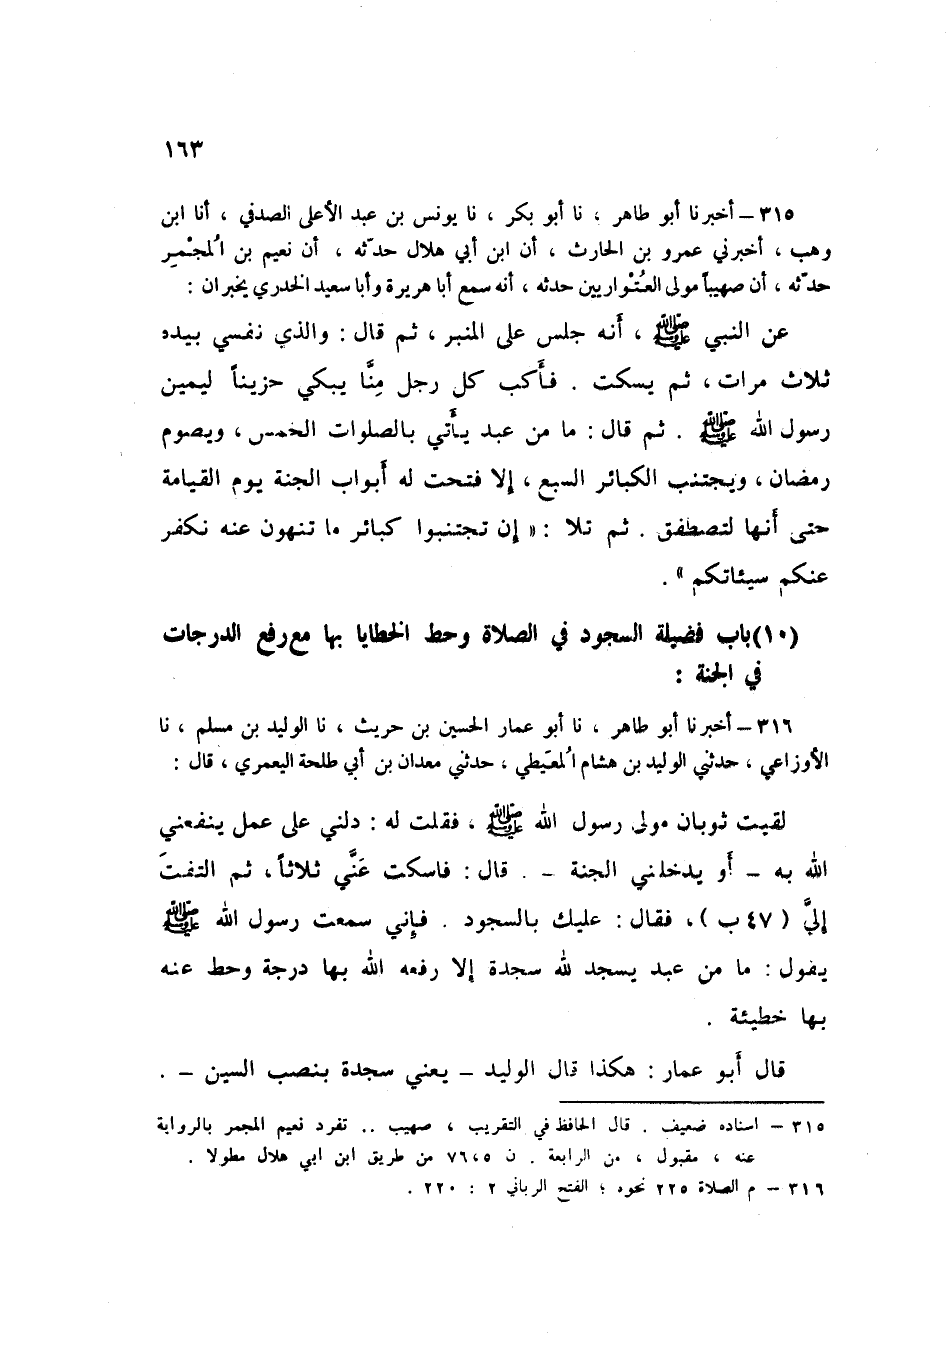 ١٦٣
٣١٥ – أخبرنا أبو طاهر ، نا أبو بكر ، نا يونس بن عبد الأعلى الصدفي ، أنا ابن
وهب ، أخبرني عمرو بن الحارث ، أن ابن أبي هلال حدّثه ، أن نعيم بن المُجْمِر
حدّثه ، أن صهيباً مولى العُتْواريين حدثه ، أنه سمع أبا هريرة وأبا سعيد الخدري يخبران :
عن النبي ﷺ ، أَنه جلس على المنبر ، ثم قال : والذي نفسي بيده
ثلاث مرات ، ثم يسكت . فأَكب كل رجل مِنَّا يبكي حزيناً ليمين
رسول الله ﷺ . ثم قال : ما من عبد يأَتي بالصلوات الخمس ، ويصوم
رمضان ، ويجتنب الكبائر السبع ، إلا فتحت له أَبواب الجنة يوم القيامة
حتى أَنها لتصطفق . ثم تلا : « إن تجتنبوا كبائر ما تنهون عنه نكفر
عنكم سيئاتكم » .
(١٠) باب فضيلة السجود في الصلاة وحط الخطايا بها مع رفع الدرجات
في الجنة :
٣١٦ – أخبرنا أبو طاهر ، نا أبو عمار الحسين بن حريث ، نا الوليد بن مسلم ، نا
الأوزاعي ، حدثني الوليد بن هشام المُعَيطي ، حدثني معدان بن أبي طلحة اليعمري ، قال :
لقيت ثوبان مولى رسول الله ﷺ ، فقلت له : دلني على عمل ينفعني
الله به – أَو يدخلني الجنة – . قال : فاسكت عَنَّي ثلاثاً ، ثم التفتَ
إليَّ ( ٤٧ ب ) ، فقال : عليك بالسجود . فإني سمعت رسول الله ﷺ
يقول : ما من عبد يسجد لله سجدة إلا رفعه الله بها درجة وحط عنه
بها خطيئة .
قال أَبو عمار : هكذا قال الوليد – يعني سجدة بنصب السين – .
٣١٥ – اسناده ضعيف . قال الحافظ في التقريب ، صهيب .. تفرد نعيم المجمر بالرواية
عنه ، مقبول ، من الرابعة . ن ٥ ، ٧٦ من طريق ابن ابي هلال مطولا .
٣١٦ – م الصلاة ٢٢٥ نحوه ؛ الفتح الرباني ٢ : ٢٢٠ .